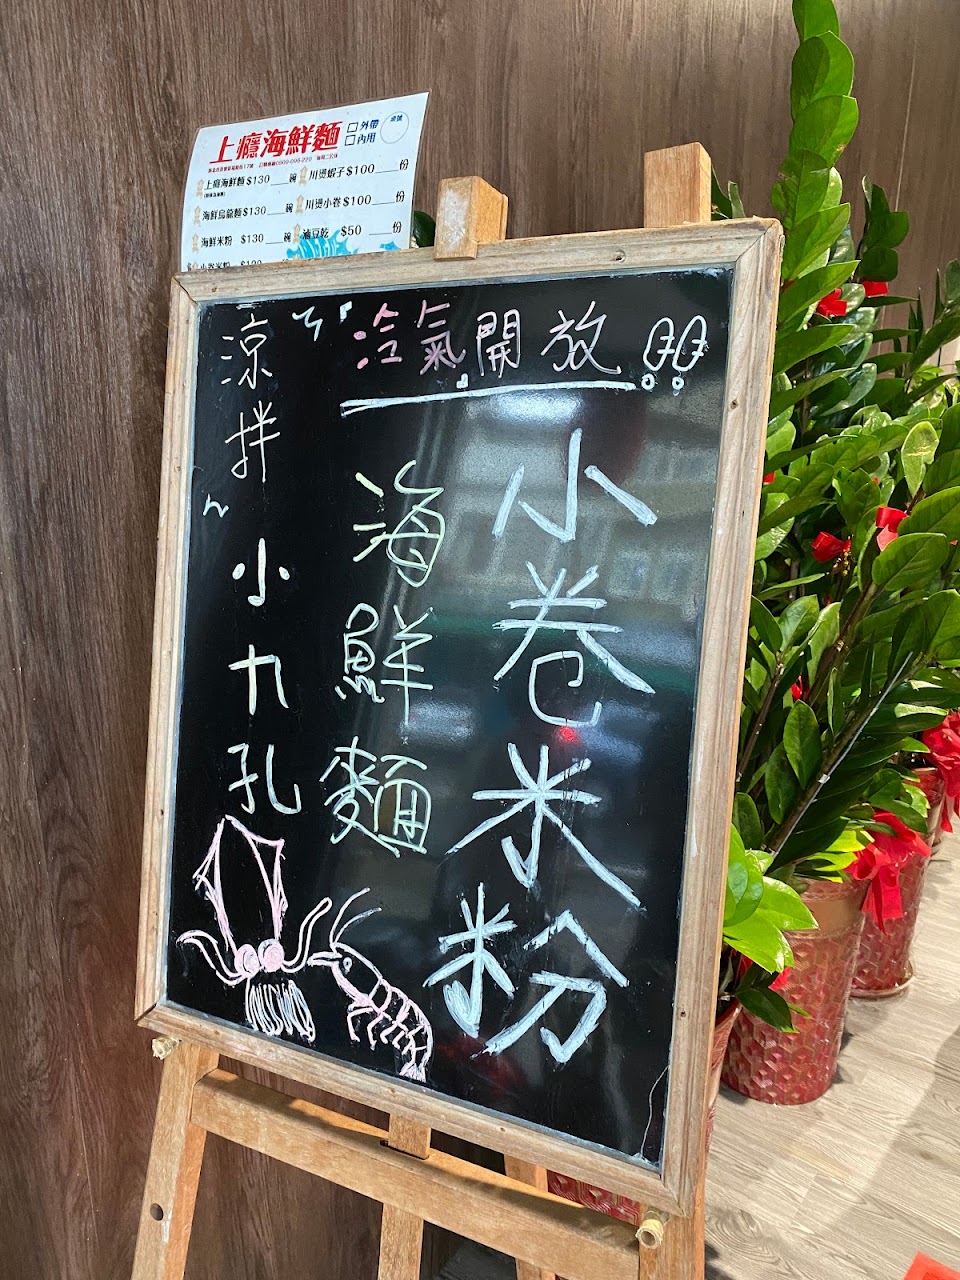 上癮海鮮麵
□外帶
□內用
桌號
上癮海鮮麵 $130___碗
川燙蝦子 $100___份
海鮮烏龍麵 $130___碗
川燙小卷 $100___份
海鮮米粉 $130___碗
滷豆乾 $50___份
冷氣開放!!
小卷米粉
海鮮麵
涼拌~小九孔